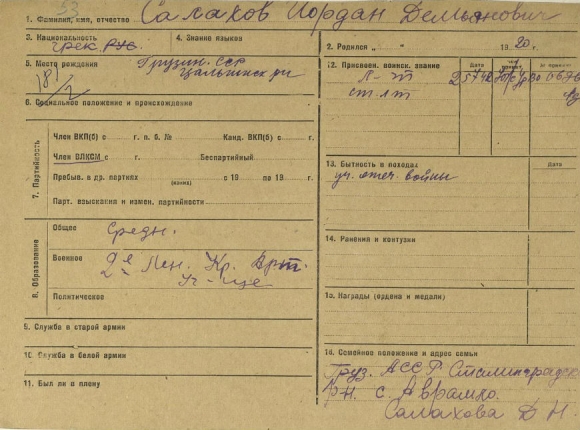 53
1. Фамилия, имя, отчество Салахов Иордан Демьянович
3. Национальность
грек рус.
4. Знание языков
2. Родился „ “ 1920 г.
5. Место рождения Грузин. ССР
Цалкинск р-н
6. Социальное положение и происхождение
7. Партийность
Член ВКП(б) с г. п. б. № Канд. ВКП(б) с г.
Член ВЛКСМ с г. Беспартийный
Пребыв. в др. партиях (каких) с 19 по 19 г.
Парт. взыскания и измен. партийности
8. Образования
Общее Средн.
Военное 2е Лен. Кр. Арт.
Уч-ще
Политическое
9. Служба в старой армии
10. Служба в белой армии
11. Был ли в плену
12. Присвоен. воинск. звание Дата
Л-т
ст. л-т
13. Бытность в походах Дата
уч. отеч. войны
14. Ранения и контузии
15. Награды (ордена и медали)
16. Семейное положение и адрес семьи
Груз. АССР Сталинградск
р-н. с. Аврамло.
Салахова Д Н.